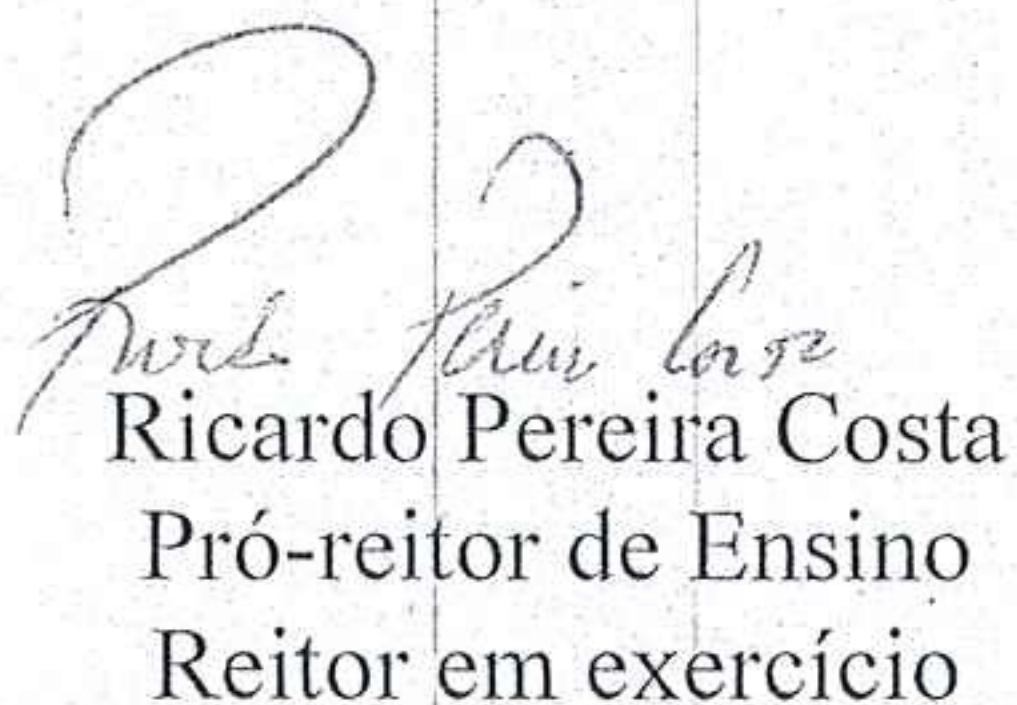 Ricardo Pereira Costa
Pró-reitor de Ensino
Reitor em exercício